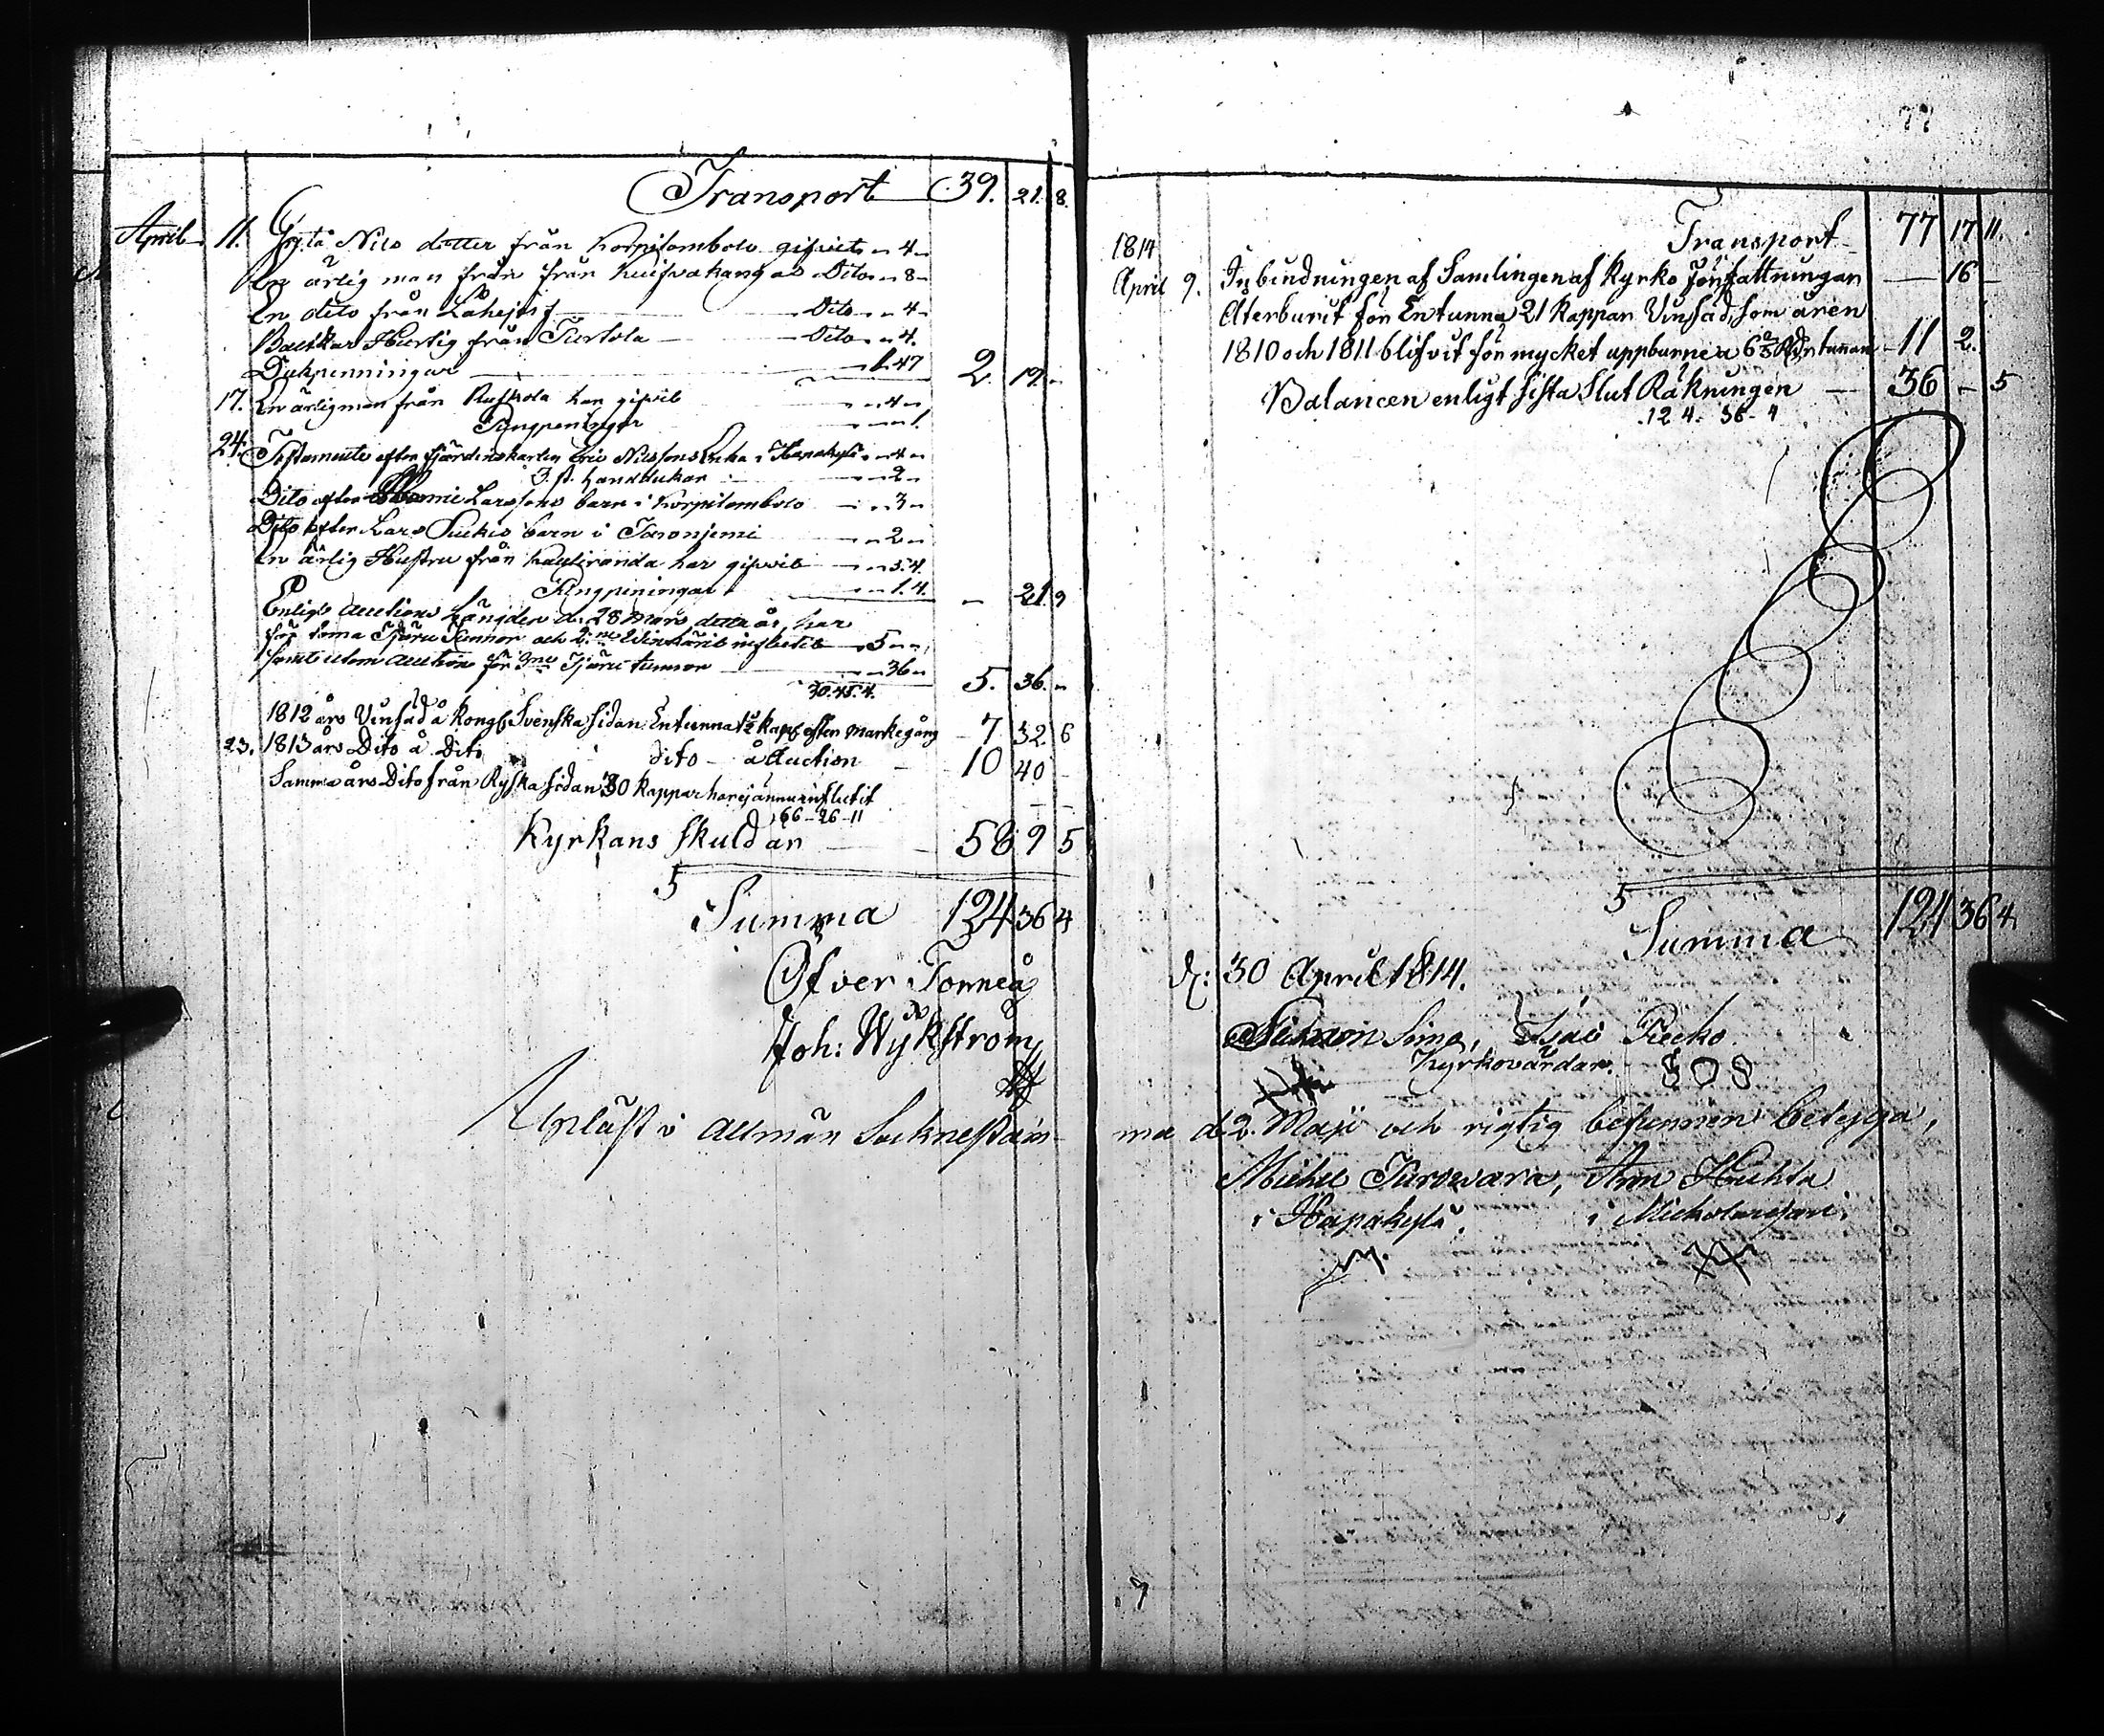 Transport 39. 21. 8.
April 11. Greta Nils dotter från Korpilombolo gifvit - 4 -
En ärlig man från från Kuifvakangas Dito - 8 -
En dito från Dito - 4 -
Balzar Hurtig från Turtola Dito - 4.
Dukpenningar 1. 47 2. 19. -
17. En ärlig man från Ruskola har gifvit - 4 -
Pungpeningar - 1.
24. Testamente efter fjärdingskarlen Eric Nilssons Enka i Hapakylä - 4 -
3. st. handdukar - 2 -
Dito efter Larssons barn i Korpilombolo - 3 -
Dito efter Lars barn i - 2 -
En ärlig Hustru från Kauliranda har gifvit - 5. 4.
Pungpeningar - 1. 4. - 21 9
Enligt Auctions Längden d. 28 Mars detta år, har
för toma Tjäru Tunnor och 2:ne influtit 5 - -
samt utom Auction för 3ne Tjäru tunnor - 36 - 5. 36. -
30. 45. 4.
1812 års Vinsäd å Kongl. Svenska sidan En tunna 1½ kapp. efter markegång 7 32 6
23. 1813 års Dito å Dito dito - å Auction 10 40 -
Samma års Dito från Ryska sidan 30 kappar har ej ännu influtit - -
66 - 26 - 11
Kyrkans skuld är 58 9 5
5 Summa 124 36 4
Öfver Torneå
Joh: Wykström
Upläst i allmän Sockneståm-
77
Transport 77 17 11.
1814
April 9. Inbindningen af Samlingen af Kyrko Författningar - 16 -
Återburit för En tunna 21 kappar Vinsäd, som åren
1810 och 1811 blifvit för mycket uppburne a 6⅔ Rdr tunnan 11 2.
Balancen enligt sista Slut Räkningen 36 - 5
124. 36 - 4
5 Summa 124 36 4
d: 30 April 1814.
Simon Simo, Isac Piecko
Kyrkovärdar.
ma d. 2. Maji och rigtig befunnen betyga,
Michel Turovara, Aron Huhta
i Hapakylä. i